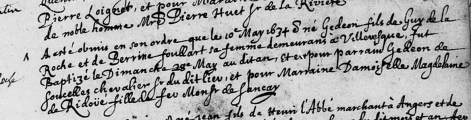 Pierre Loignet, et pour Marraine
de nôtre homme Mre Pierre Huet sr de la Rivière
A esté obmis en son ordre que le 10e May 1674 est né Gedeon fils de Guy de la
Roche et de Perrine foullart sa femme demeurans à Villevesque, fut
Baptizé le Dimanche May au dit an, et pour parrain Gedeon de
Soucelles chevalier sr du dit lieu, et pour Marraine Damoiselle Magdelaine
de Ridoüe fille de feu Monsr de Sancay
Jean fils de Henri l'Abbé marchant à Angers et de